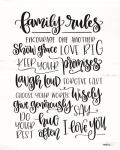 family rules
ENCOURAGE ONE ANOTHER
Show grace LOVE BIG
KEEP YOUR promises
laugh loud FORGIVE FAST
CHOOSE WORDS wisely
give generously SAY
DO YOUR BEST hug often I love you